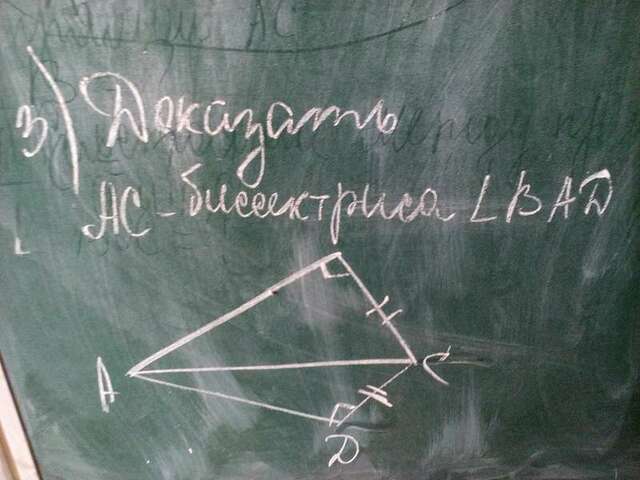 3) Доказать
AC - биссектриса ∠BAD
A
C
D